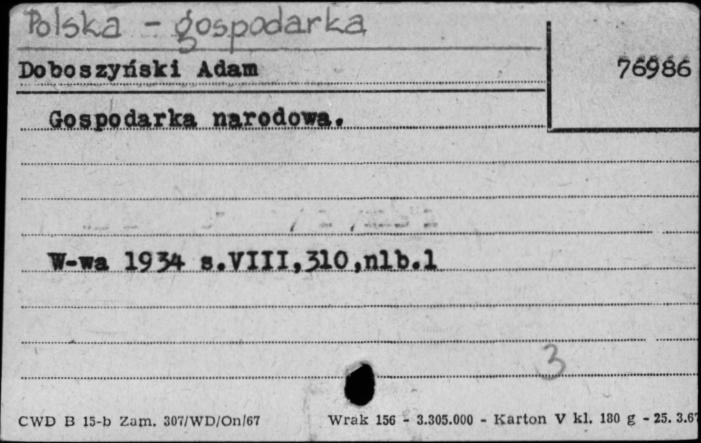 Polska - gospodarka
Doboszyński Adam
76986
Gospodarka narodowa.
W-wa 1934 s.VIII,310,nlb.1
3
CWD B 15-b Zam. 307/WD/On/67
Wrak 156 - 3.305.000 - Karton V kl. 180 g - 25. 3.67